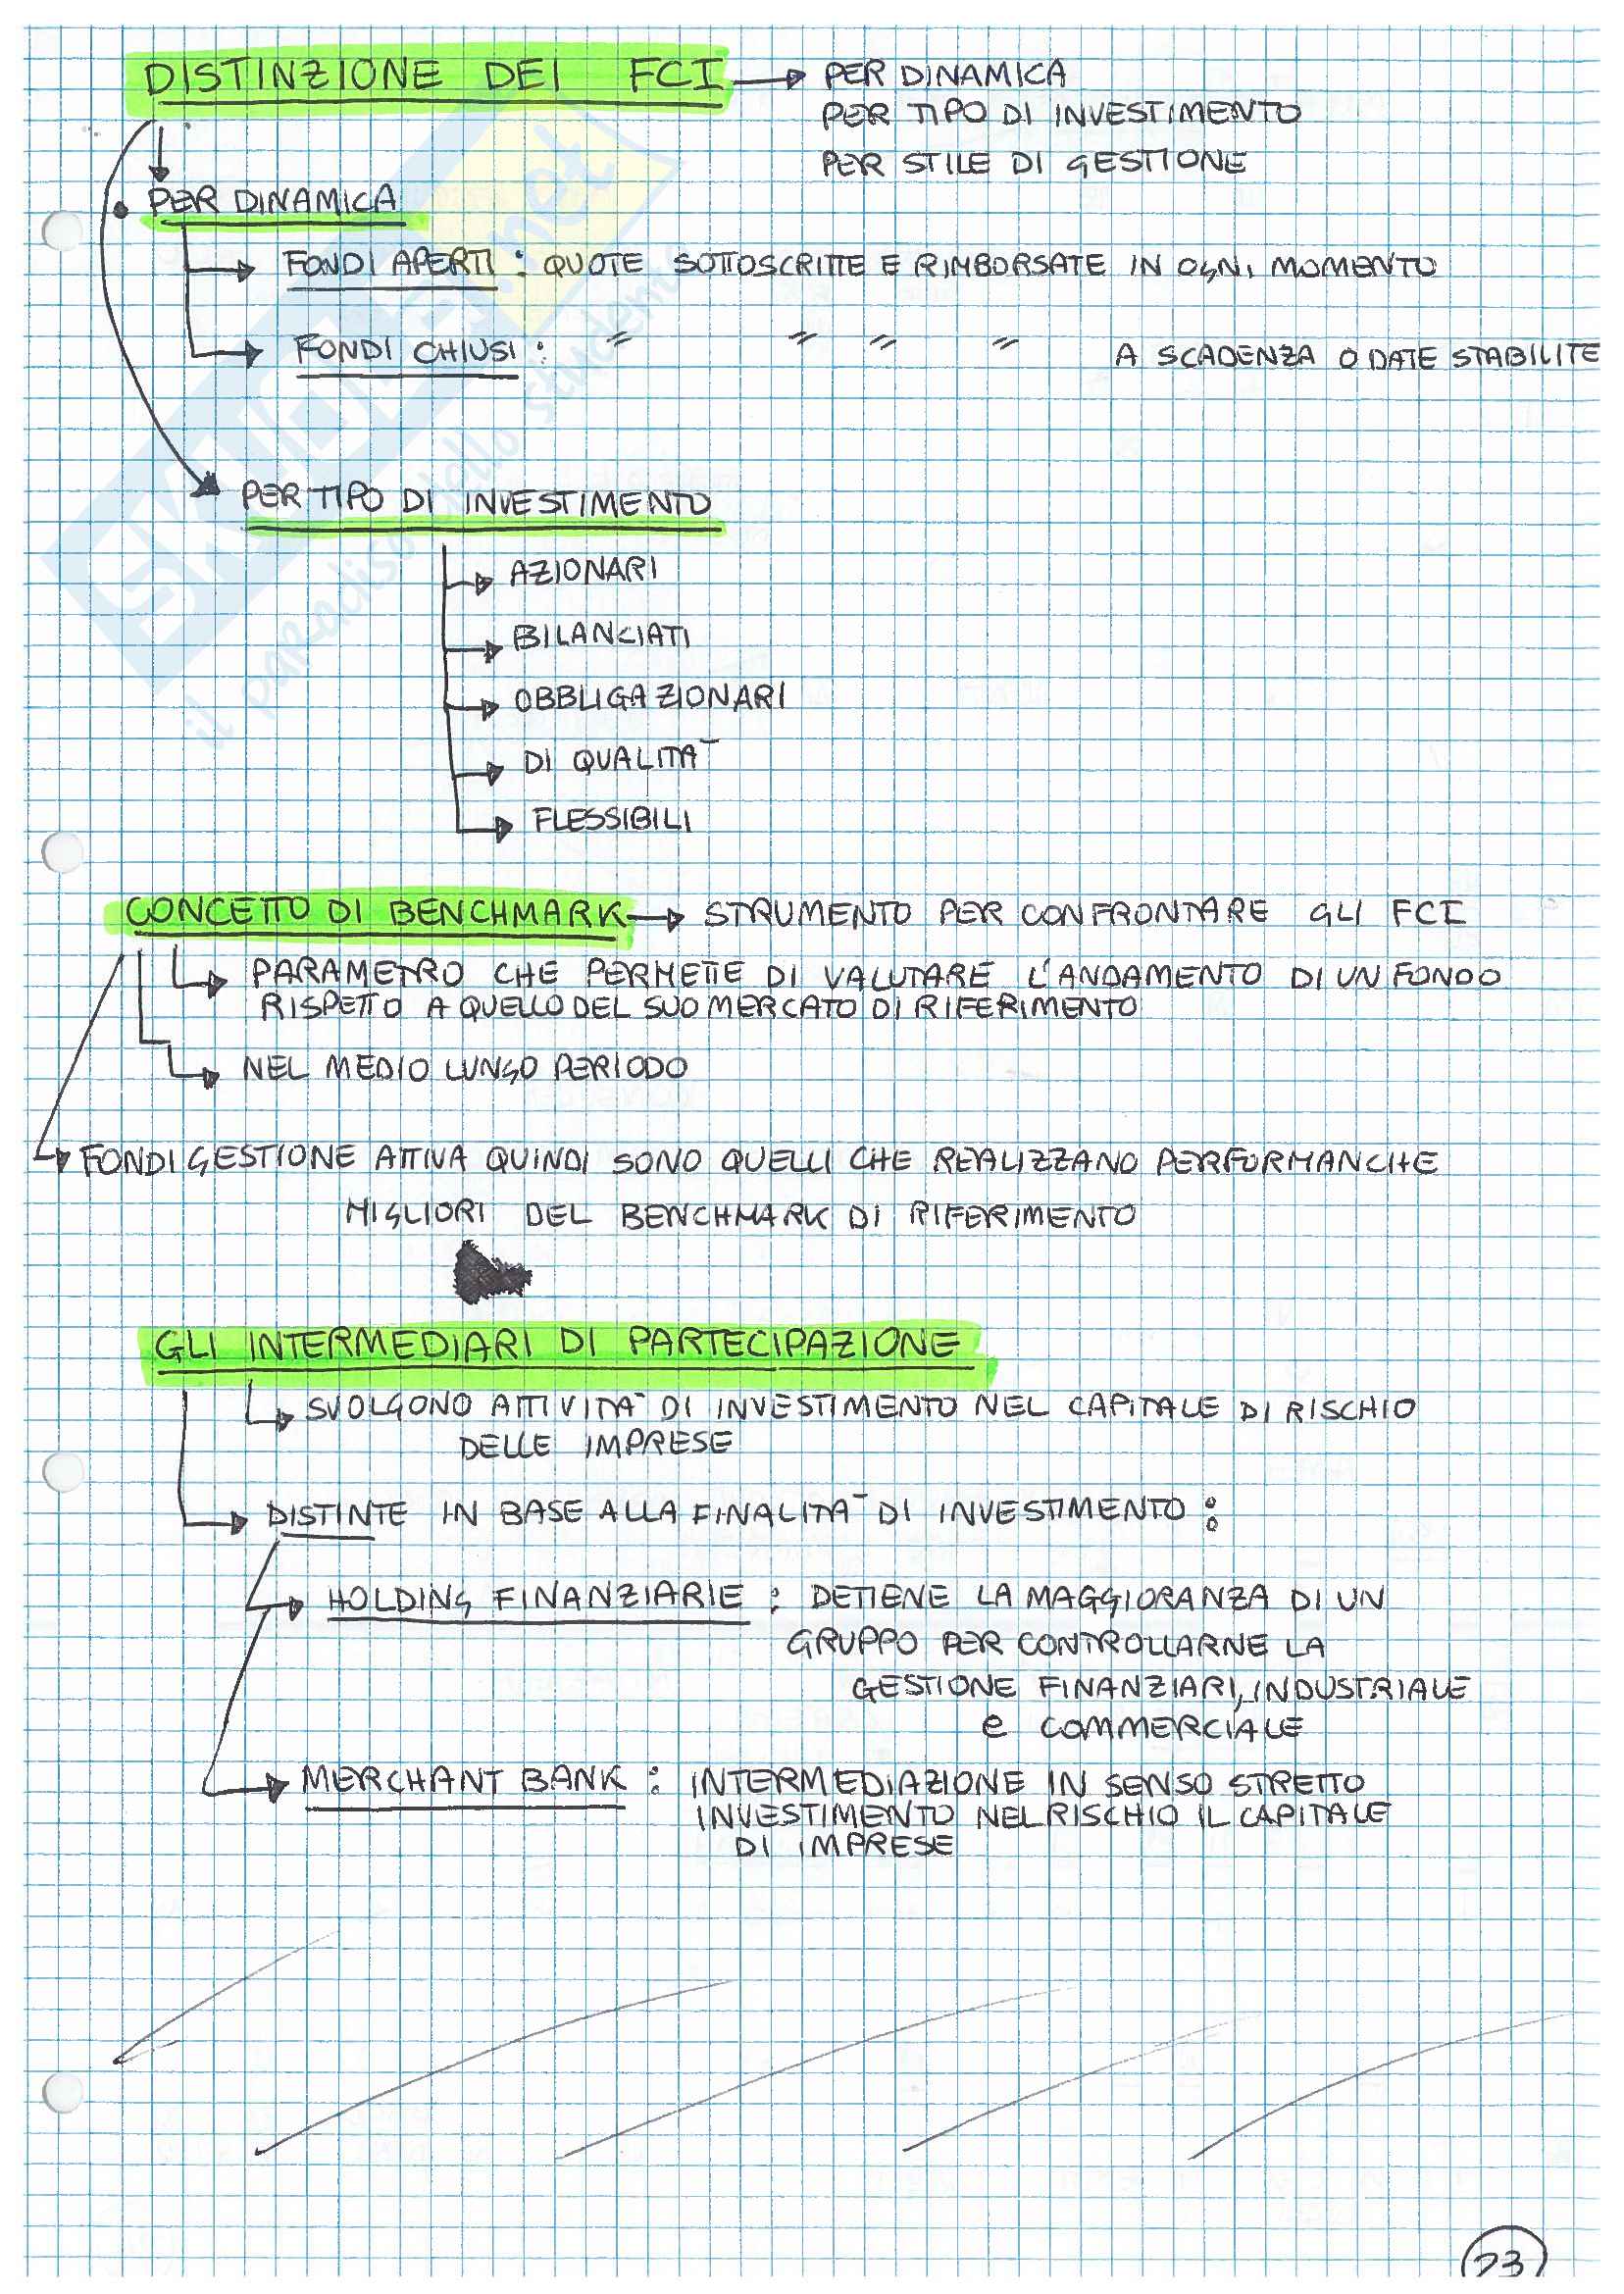 DISTINZIONE DEI FCI → PER DINAMICA
PER TIPO DI INVESTIMENTO
PER STILE DI GESTIONE
• PER DINAMICA
FONDI APERTI : QUOTE SOTTOSCRITTE E RIMBORSATE IN OGNI MOMENTO
FONDI CHIUSI : " " " " A SCADENZA O DATE STABILITE
PER TIPO DI INVESTIMENTO
AZIONARI
BILANCIATI
OBBLIGAZIONARI
DI QUALITA'
FLESSIBILI
CONCETTO DI BENCHMARK → STRUMENTO PER CONFRONTARE GLI FCI
PARAMETRO CHE PERMETTE DI VALUTARE L'ANDAMENTO DI UN FONDO
RISPETTO A QUELLO DEL SUO MERCATO DI RIFERIMENTO
NEL MEDIO LUNGO PERIODO
FONDI GESTIONE ATTIVA QUINDI SONO QUELLI CHE REALIZZANO PERFORMANCHE
MIGLIORI DEL BENCHMARK DI RIFERIMENTO
GLI INTERMEDIARI DI PARTECIPAZIONE
SVOLGONO ATTIVITA' DI INVESTIMENTO NEL CAPITALE DI RISCHIO
DELLE IMPRESE
DISTINTE IN BASE ALLA FINALITA' DI INVESTIMENTO :
HOLDING FINANZIARIE : DETIENE LA MAGGIORANZA DI UN
GRUPPO PER CONTROLLARNE LA
GESTIONE FINANZIARI, INDUSTRIALE
e COMMERCIALE
MERCHANT BANK : INTERMEDIAZIONE IN SENSO STRETTO
INVESTIMENTO NEL RISCHIO IL CAPITALE
DI IMPRESE
23
SKUOLA.net
il paradiso dello studente